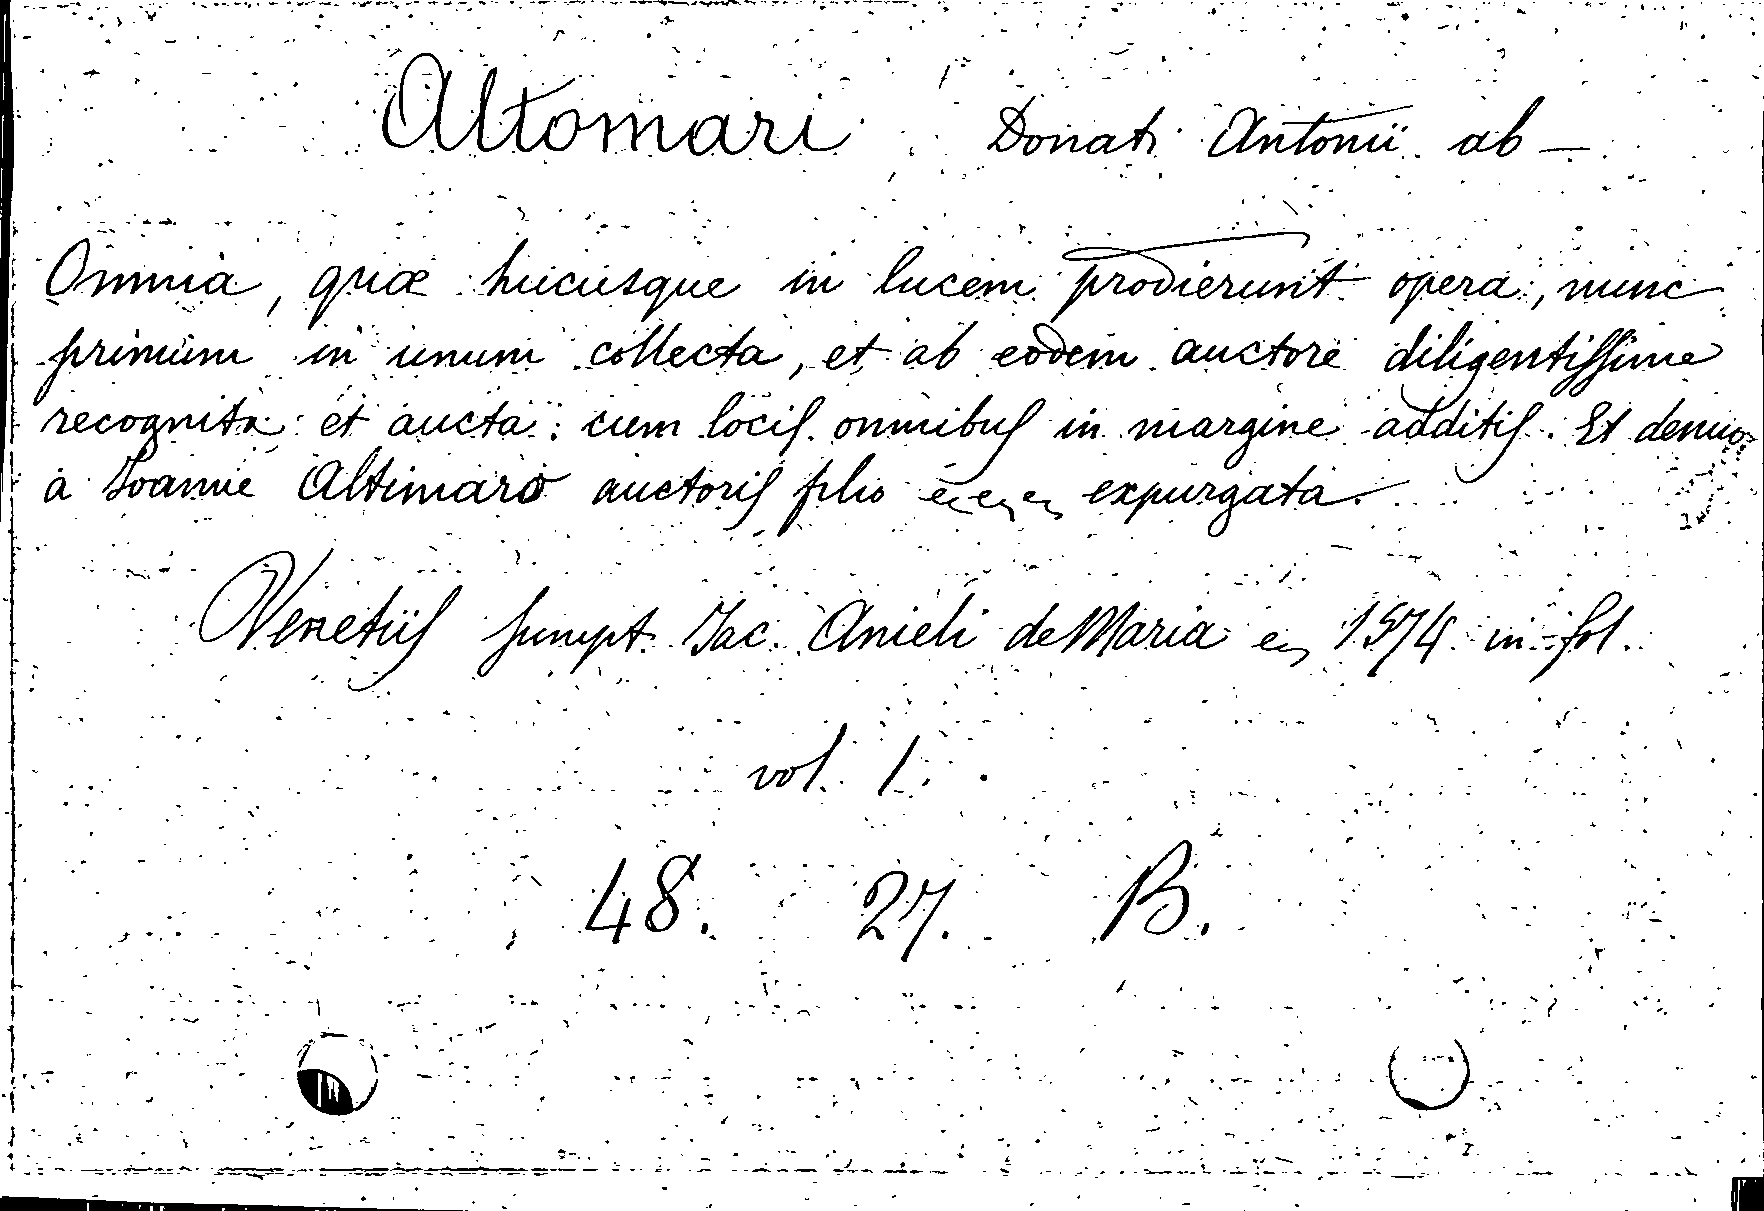 Altomari Donati Antonii ab —
Omnia, quæ hucusque in lucem prodierunt opera, nunc
primum in unum collecta, et ab eodem auctore diligentissime
recognita et aucta: cum locis omnibus in margine additis. Et denuo
a Ioanne Altimaro auctoris filio expurgata.
Venetiis sumpt. Jac. Anieli de Maria 1574 in-fol.
vol. 1.
48. 27. B.